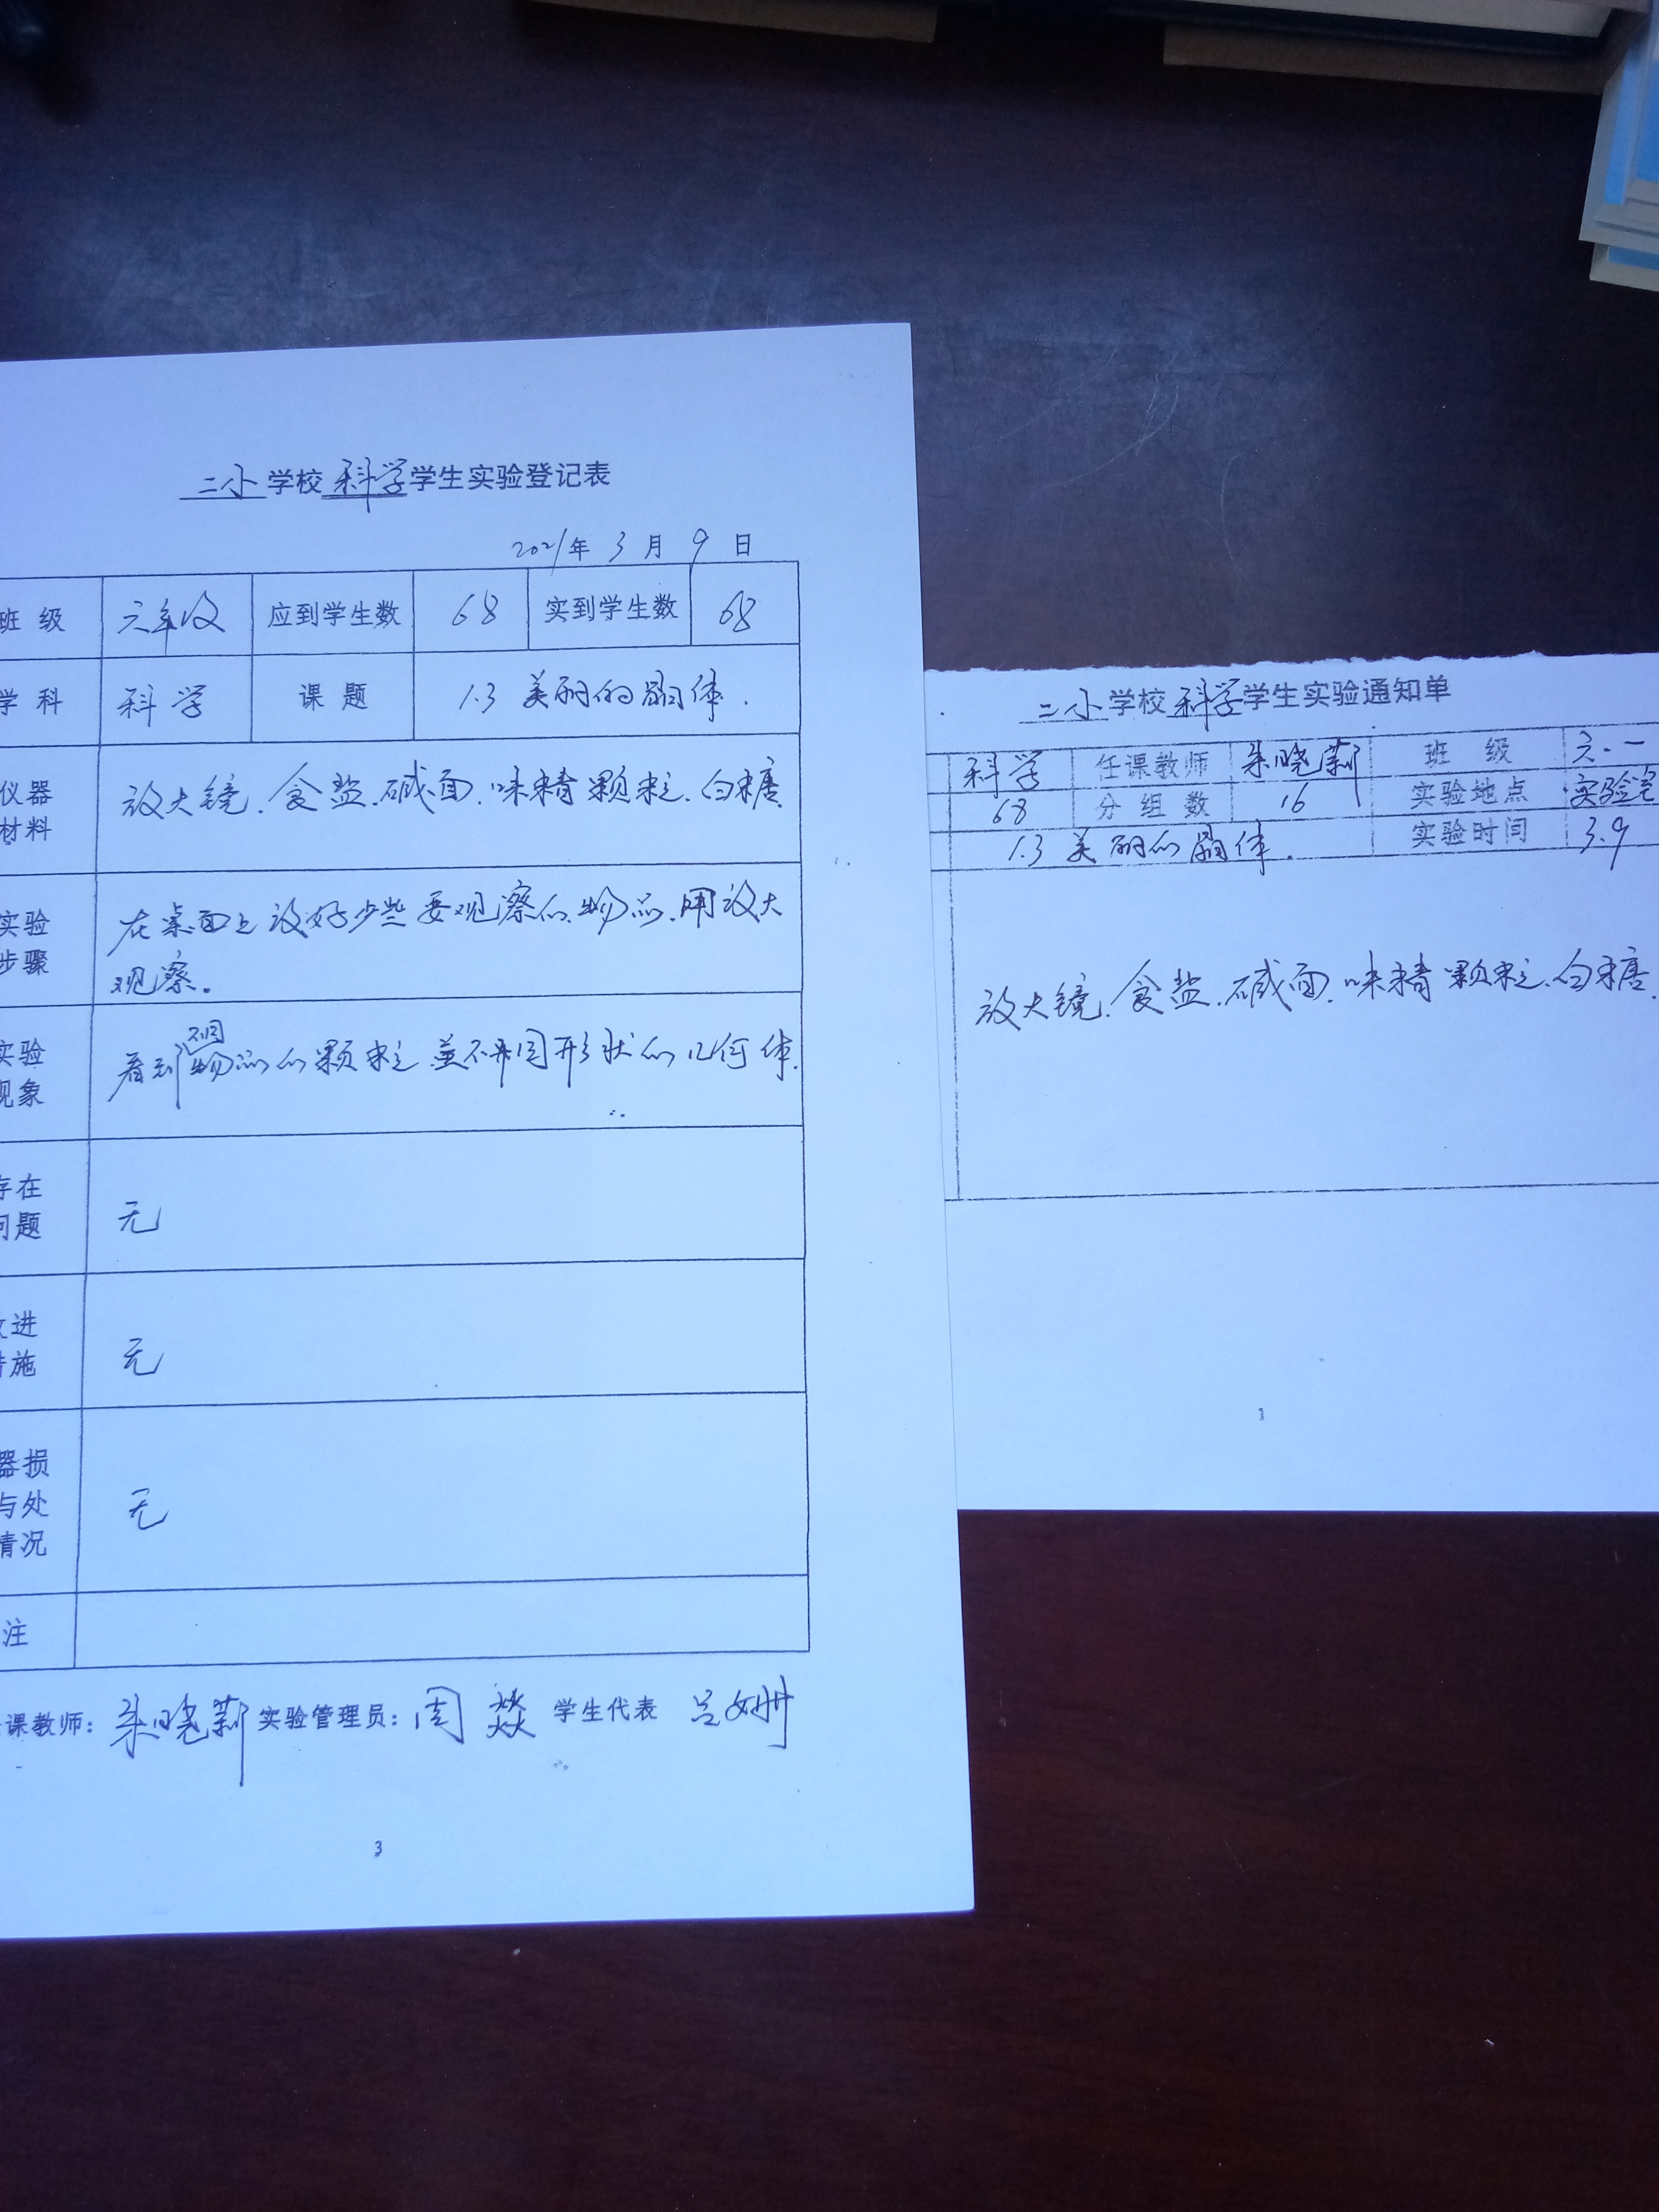 二小学校科学学生实验登记表
2021年 3月 9日
班 级 六年级 应到学生数 68 实到学生数 68
学 科 科学 课 题 1.3 美丽的晶体.
仪器
材料
放大镜.食盐.碱面.味精颗粒.白糖
实验
步骤
在桌面上放好少些要观察的物品.用放大
观察。
实验
现象
不同
看到物品的颗粒 并不同形状的几何体.
存在
问题
无
改进
措施
无
器损
与处
情况
无
注
课教师: 朱晓莉 实验管理员: 周燚 学生代表 吕姗
3
二小学校科学学生实验通知单
科学 任课教师 朱晓莉 班 级 六.一
68 分 组 数 16 实验地点 实验室
1.3 美丽的晶体. 实验时间 3.9
放大镜.食盐.碱面.味精颗粒.白糖.
1